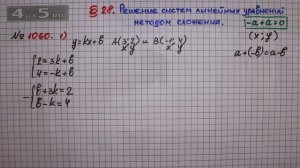 4 and 5
§ 28. Решение систем линейных уравнений
методом сложения.
-a+a=0
№ 1060. 1) y=kx+b A(3;2) B(-1;4)
x y x y
(x;y)
a+(-b)=a-b
{2=3k+b
4=-k+b
-{b+3k=2
b-k=4